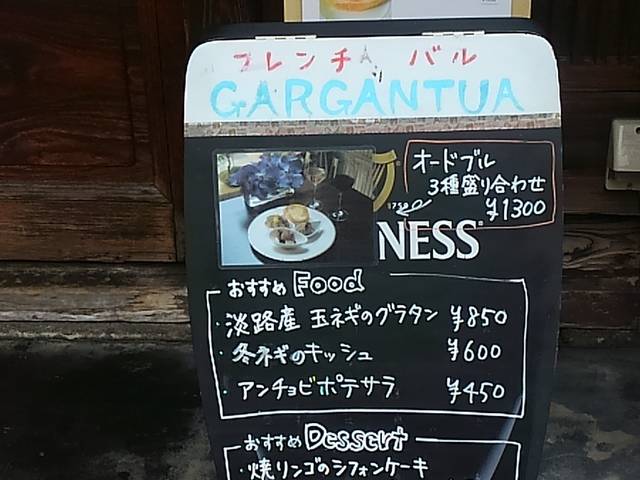 フレンチ バル
GARGANTUA
オードブル
3種盛り合わせ
¥1300
1759
NESS
おすすめ Food
・淡路産 玉ネギのグラタン ¥850
・冬ネギのキッシュ ¥600
・アンチョビポテサラ ¥450
おすすめ Dessert
・焼リンゴのシフォンケーキ